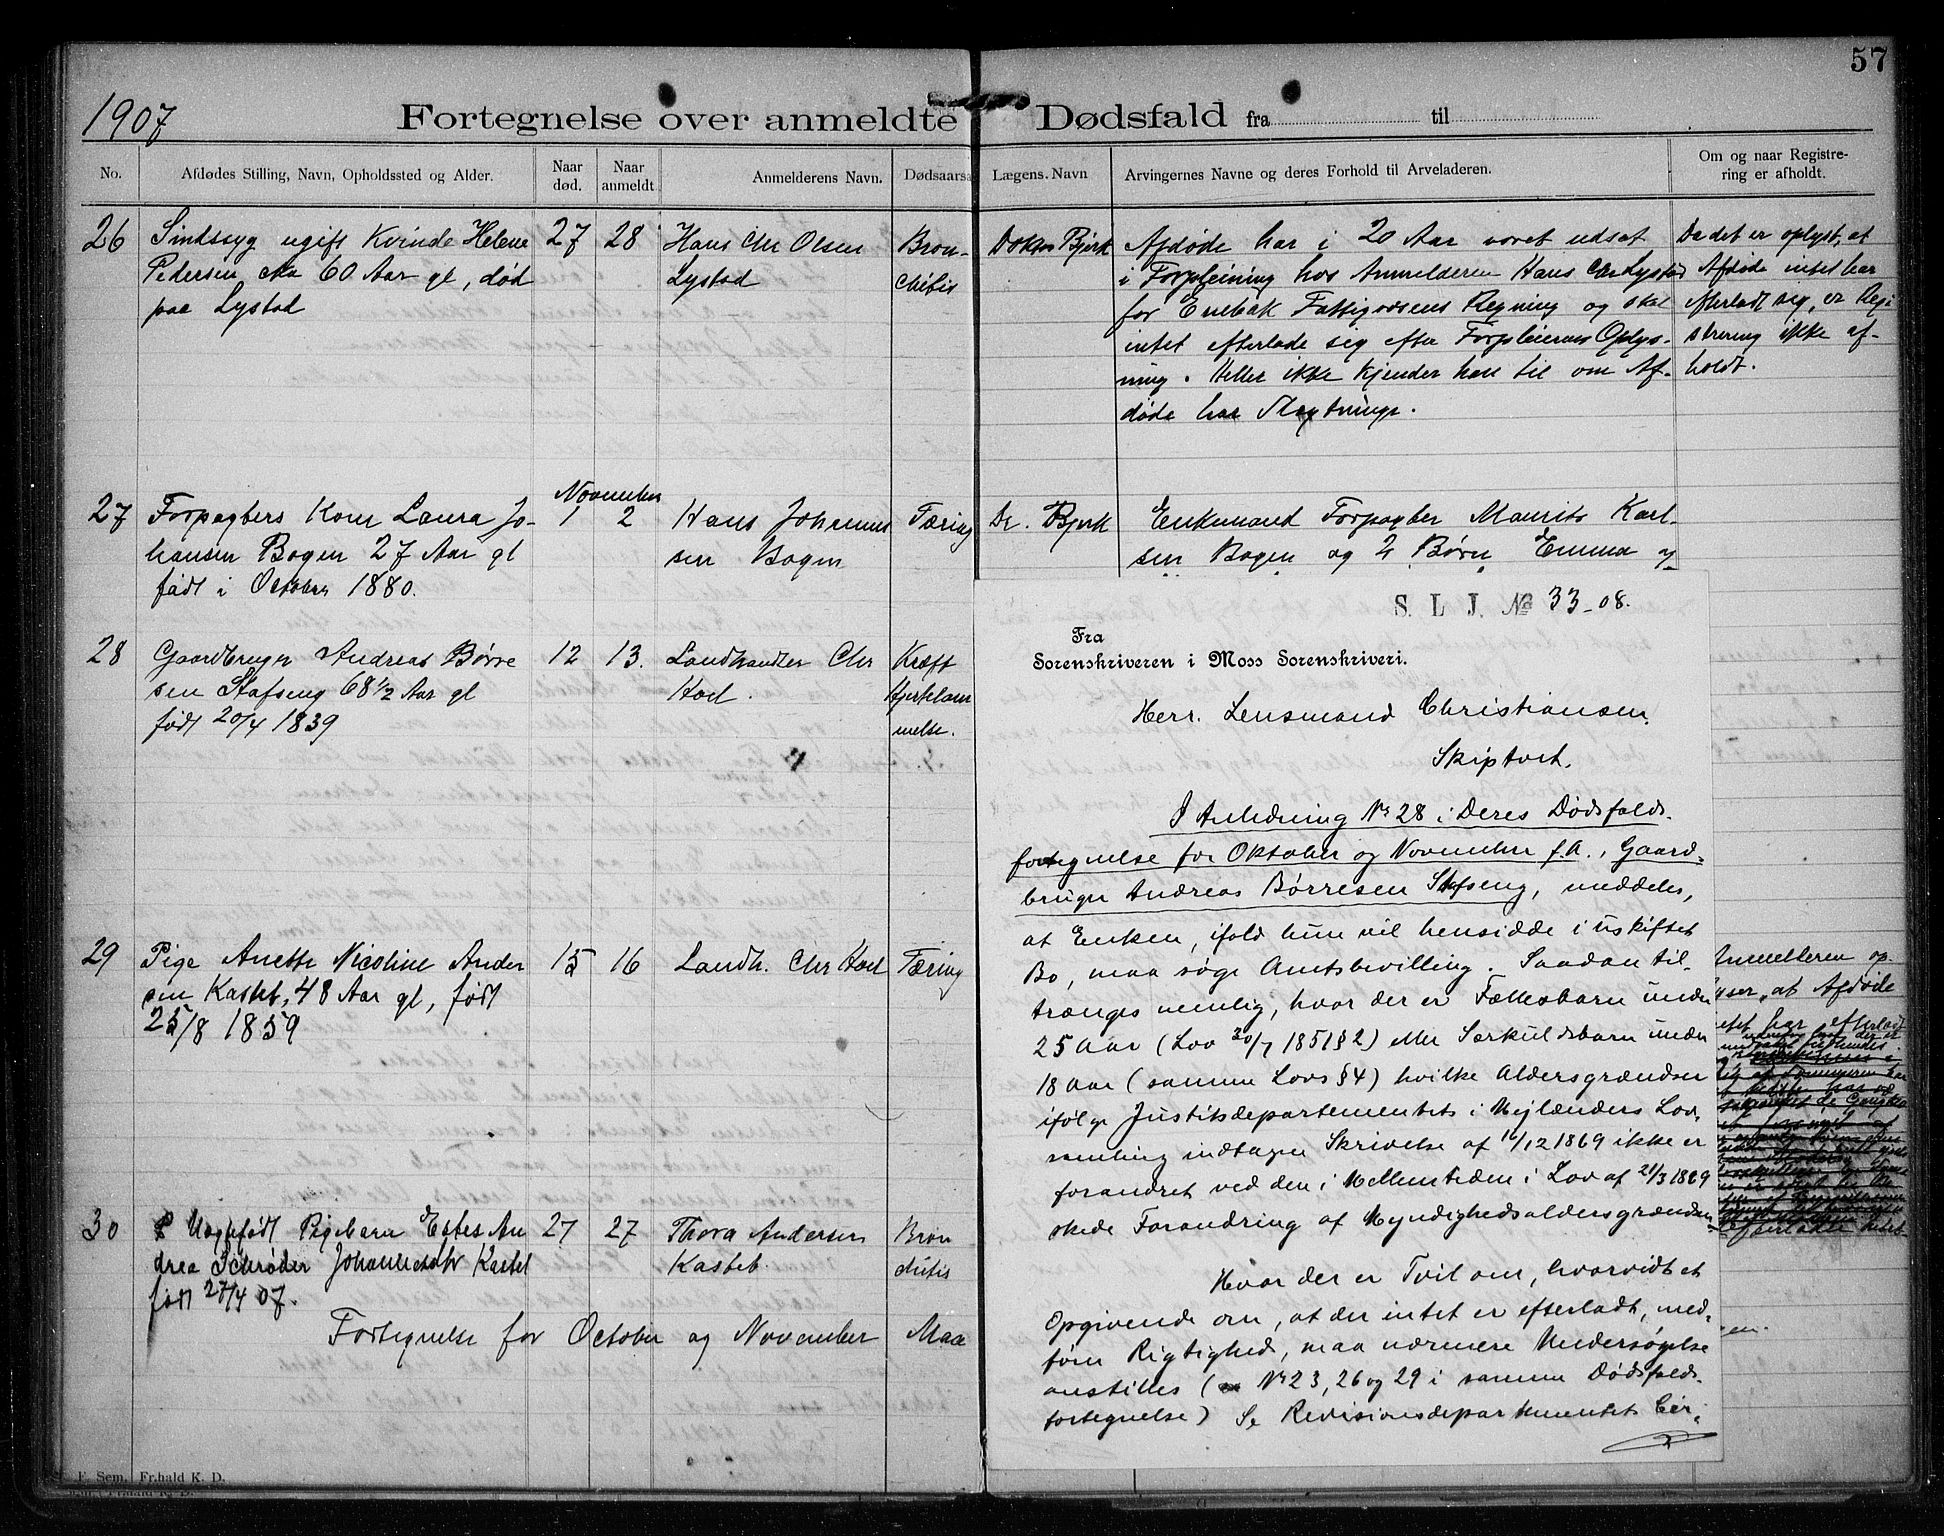 57
1907
Fortegnelse over anmeldte Dødsfald fra til
No.
Afdødes Stilling, Navn, Opholdssted og Alder.
Naar død.
Naar anmeldt.
Anmelderens Navn.
Dødsaarsa
Lægens Navn
Arvingernes Navne og deres Forhold til Arveladeren.
Om og naar Registre-
ring er afholdt.
26
Sindssyg ugift Kvinde Helene
Pedersen, cka 60 Aar gl, død
paa Lystad
27
28
Hans Chr Olsen
Lystad
Bron-
chitis
Doktor Bjerk
Afdøde har i 20 Aar været udsat
i Forpleining hos Anmelderen Hans Chr Lystad
for Enebak Fattigvæsens Regning og skal
intet efterlade sig efter Forpleierens Oplys-
ning. Heller ikke kjender han til om Af-
døde har Slægtninge.
Da det er oplyst, at
Afdøde intet har
efterladt sig, er Regi
strering ikke af-
holdt.
27
Forpagters Kone Laura Jo-
hansen Bogen 27 Aar gl
født i October 1880.
November
1
2
Hans Johannes
sen Bogen
Tæring
Dr. Bjerk
Enkemand Forpagter Maurits Karl-
sen Bogen og 2 Børn Emma og
28
Gaardbruger Andreas Børre
sen Stafseng 68 1/2 Aar gl
født 20/4 1839
12
13.
Landhandler Chr
Hoel.
Kræft
Hjertelam
melse.
29
Pige Anette Nicoline Ander
sen Kastet, 48 Aar gl, født
25/8 1859
15
16
Landh. Chr Hoel
Tæring
Anmelderen op-
lyser, at Afdøde
intet har efterladt
30
Uægtefødt Pigebarn Ester An
drea Schrøder Johannesdatr Kastet
født 27/4 07.
27
27
Thora Andersen
Kastet.
Bron
chitis
Fortegnelse for October og November Maa
S. L. J. No 33-08.
Fra
Sorenskriveren i Moss Sorenskriveri.
Herr. Lensmand Christiansen.
Skiptvet.
I Anledning Nr 28 i Deres Dødsfalds-
fortegnelse for Oktober og November f.A., Gaard-
bruger Andreas Børresen Stafseng, meddeles,
at Enken, ifald hun vil hensidde i uskiftet
Bo, maa søge Amtsbevilling. Saadan til-
trænges nemlig, hvor der er Fællesbarn under
25 Aar (Lov 30/7 1851 § 2) eller Særkuldsbarn under
18 Aar (samme Lovs § 4) hvilke Aldersgrændser
ifølge Justitsdepartementets i Mejlænders Lov-
samling indtagen Skrivelse af 16/12 1869 ikke er
forandret ved den i Mellemtiden i Lov af 21/3 1869
skede Forandring af Myndighedsaldersgrændsen.
Hvor der er Tvil om, hvorvidt et
Opgivende om, at der intet er efterladt, med-
fører Rigtighed, maa nærmere Undersøgelse
anstilles (Nr 23, 26 og 29 i samme Dødsfalds-
fortegnelse) Se Revisionsdepartementets Cir-
F. Sem, Fr.hald K. D.